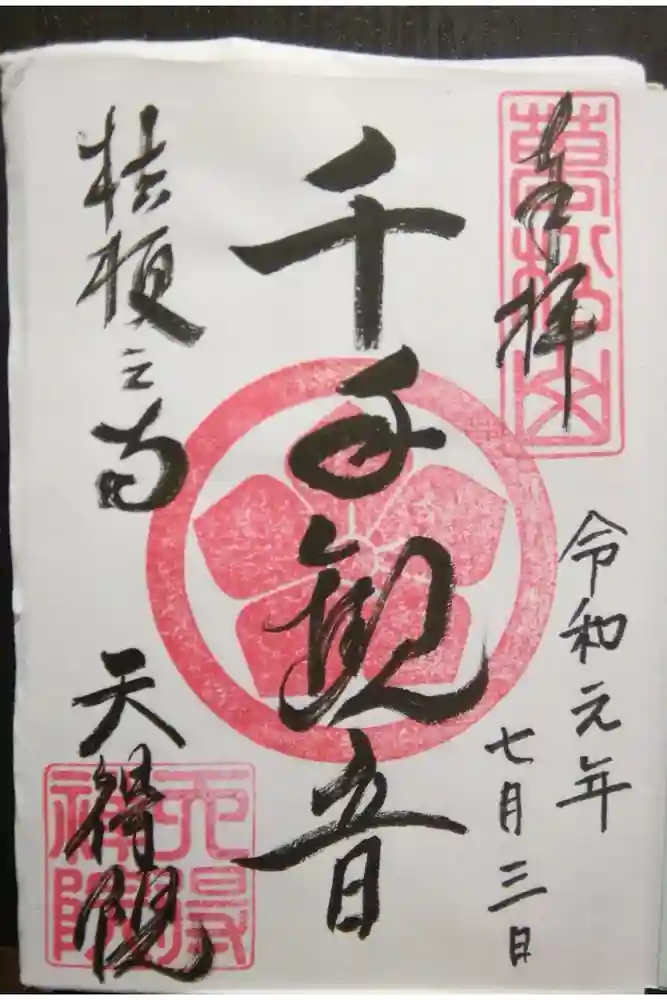 奉拝
萬松山
令和元年
七月三日
千手観音
桔梗之寺
天得院
天得
禅院